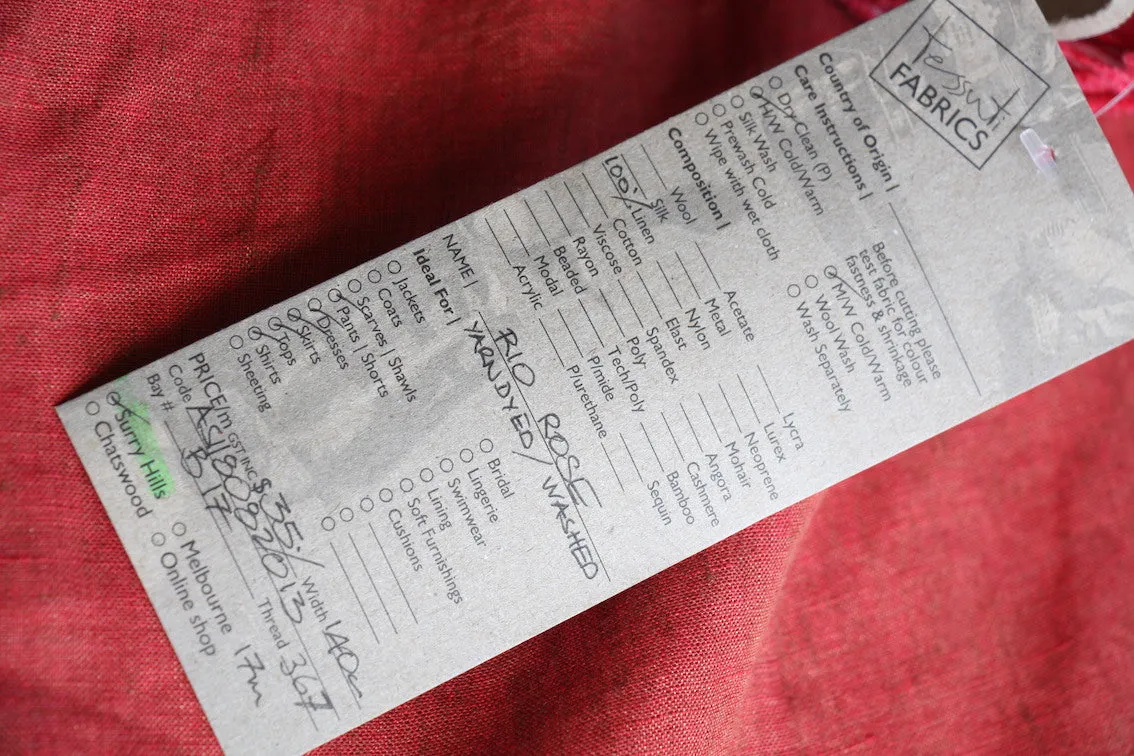 Tessuti
FABRICS
Country of Origin |
Care Instructions |
Dry Clean (P)
H/W Cold/Warm
Silk Wash
Prewash Cold
Wipe with wet cloth
Before cutting please
test fabric for colour
fastness & shrinkage
M/W Cold/Warm
Wool Wash
Wash Separately
Composition |
Wool
Silk
100% Linen
Cotton
Viscose
Rayon
Beaded
Modal
Acrylic
Acetate
Metal
Nylon
Elast
Spandex
Poly
Tech/Poly
P/mide
P/urethane
Lycra
Lurex
Neoprene
Mohair
Angora
Cashmere
Bamboo
Sequin
NAME | RIO ROSE
YARNDYED/WASHED
Ideal For |
Jackets
Coats
Scarves | Shawls
Pants | Shorts
Dresses
Skirts
Tops
Shirts
Sheeting
Bridal
Lingerie
Swimwear
Lining
Soft Furnishings
Cushions
PRICE/m GST INC $35/ Width 140cm
Code Thread 367
Bay # B17
Surry Hills
Chatswood
Melbourne
Online shop
17m